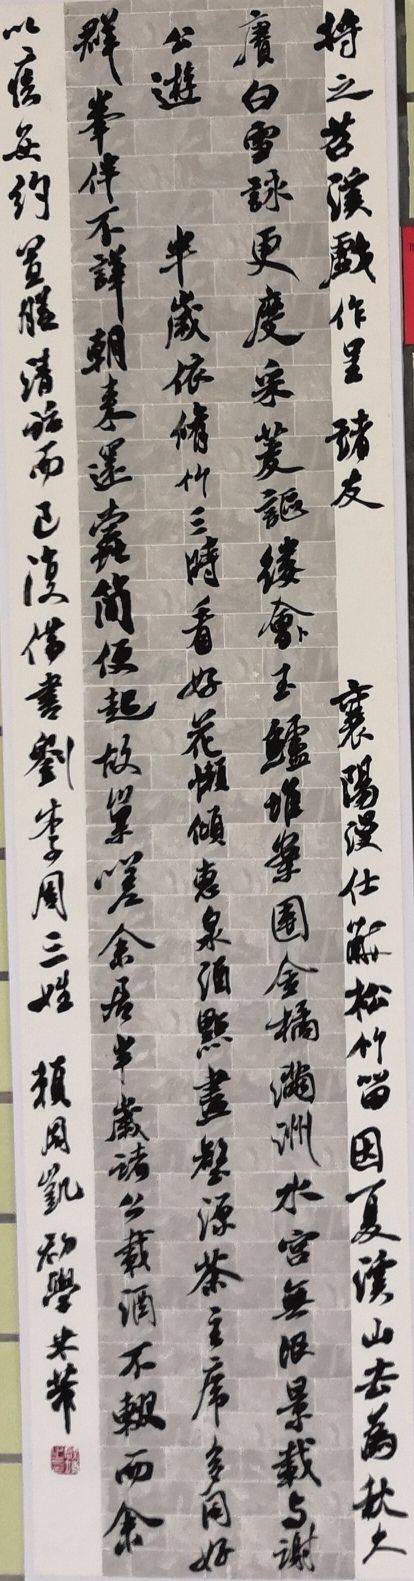 將之苕溪戲作呈 諸友 襄陽漫仕黻 松竹留因夏溪山去為秋久
賡白雪詠更度采菱謳縷會玉鱸堆案團金橘滿洲水宮無限景載與謝
公遊 半歲依脩竹三時看好花懶傾惠泉酒點盡壑源茶主席多同好
群峯伴不譁朝來還蠹簡便起故巢嗟余居半歲諸公載酒不輟而余
以疾每約置膳清話而已復借書劉李周三姓 周凱初學米芾